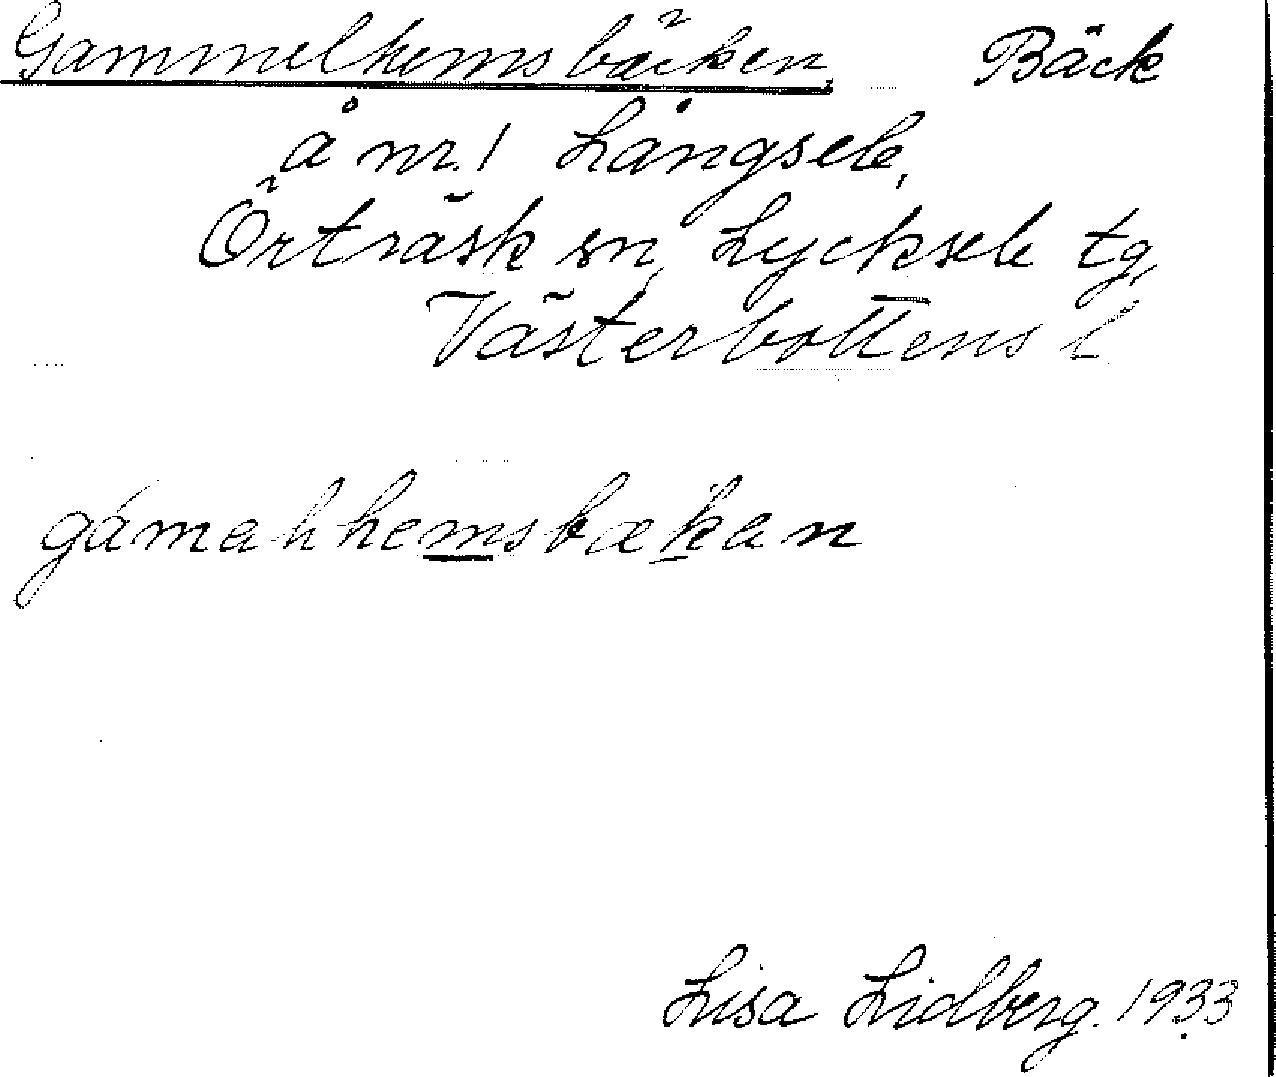 Gammelhemsbäcken, Bäck
å nr. 1 Långsele,
Örträsk sn, Lycksele tg,
Västerbottens l
gámahhemsbækan
Lisa Lidberg. 1933